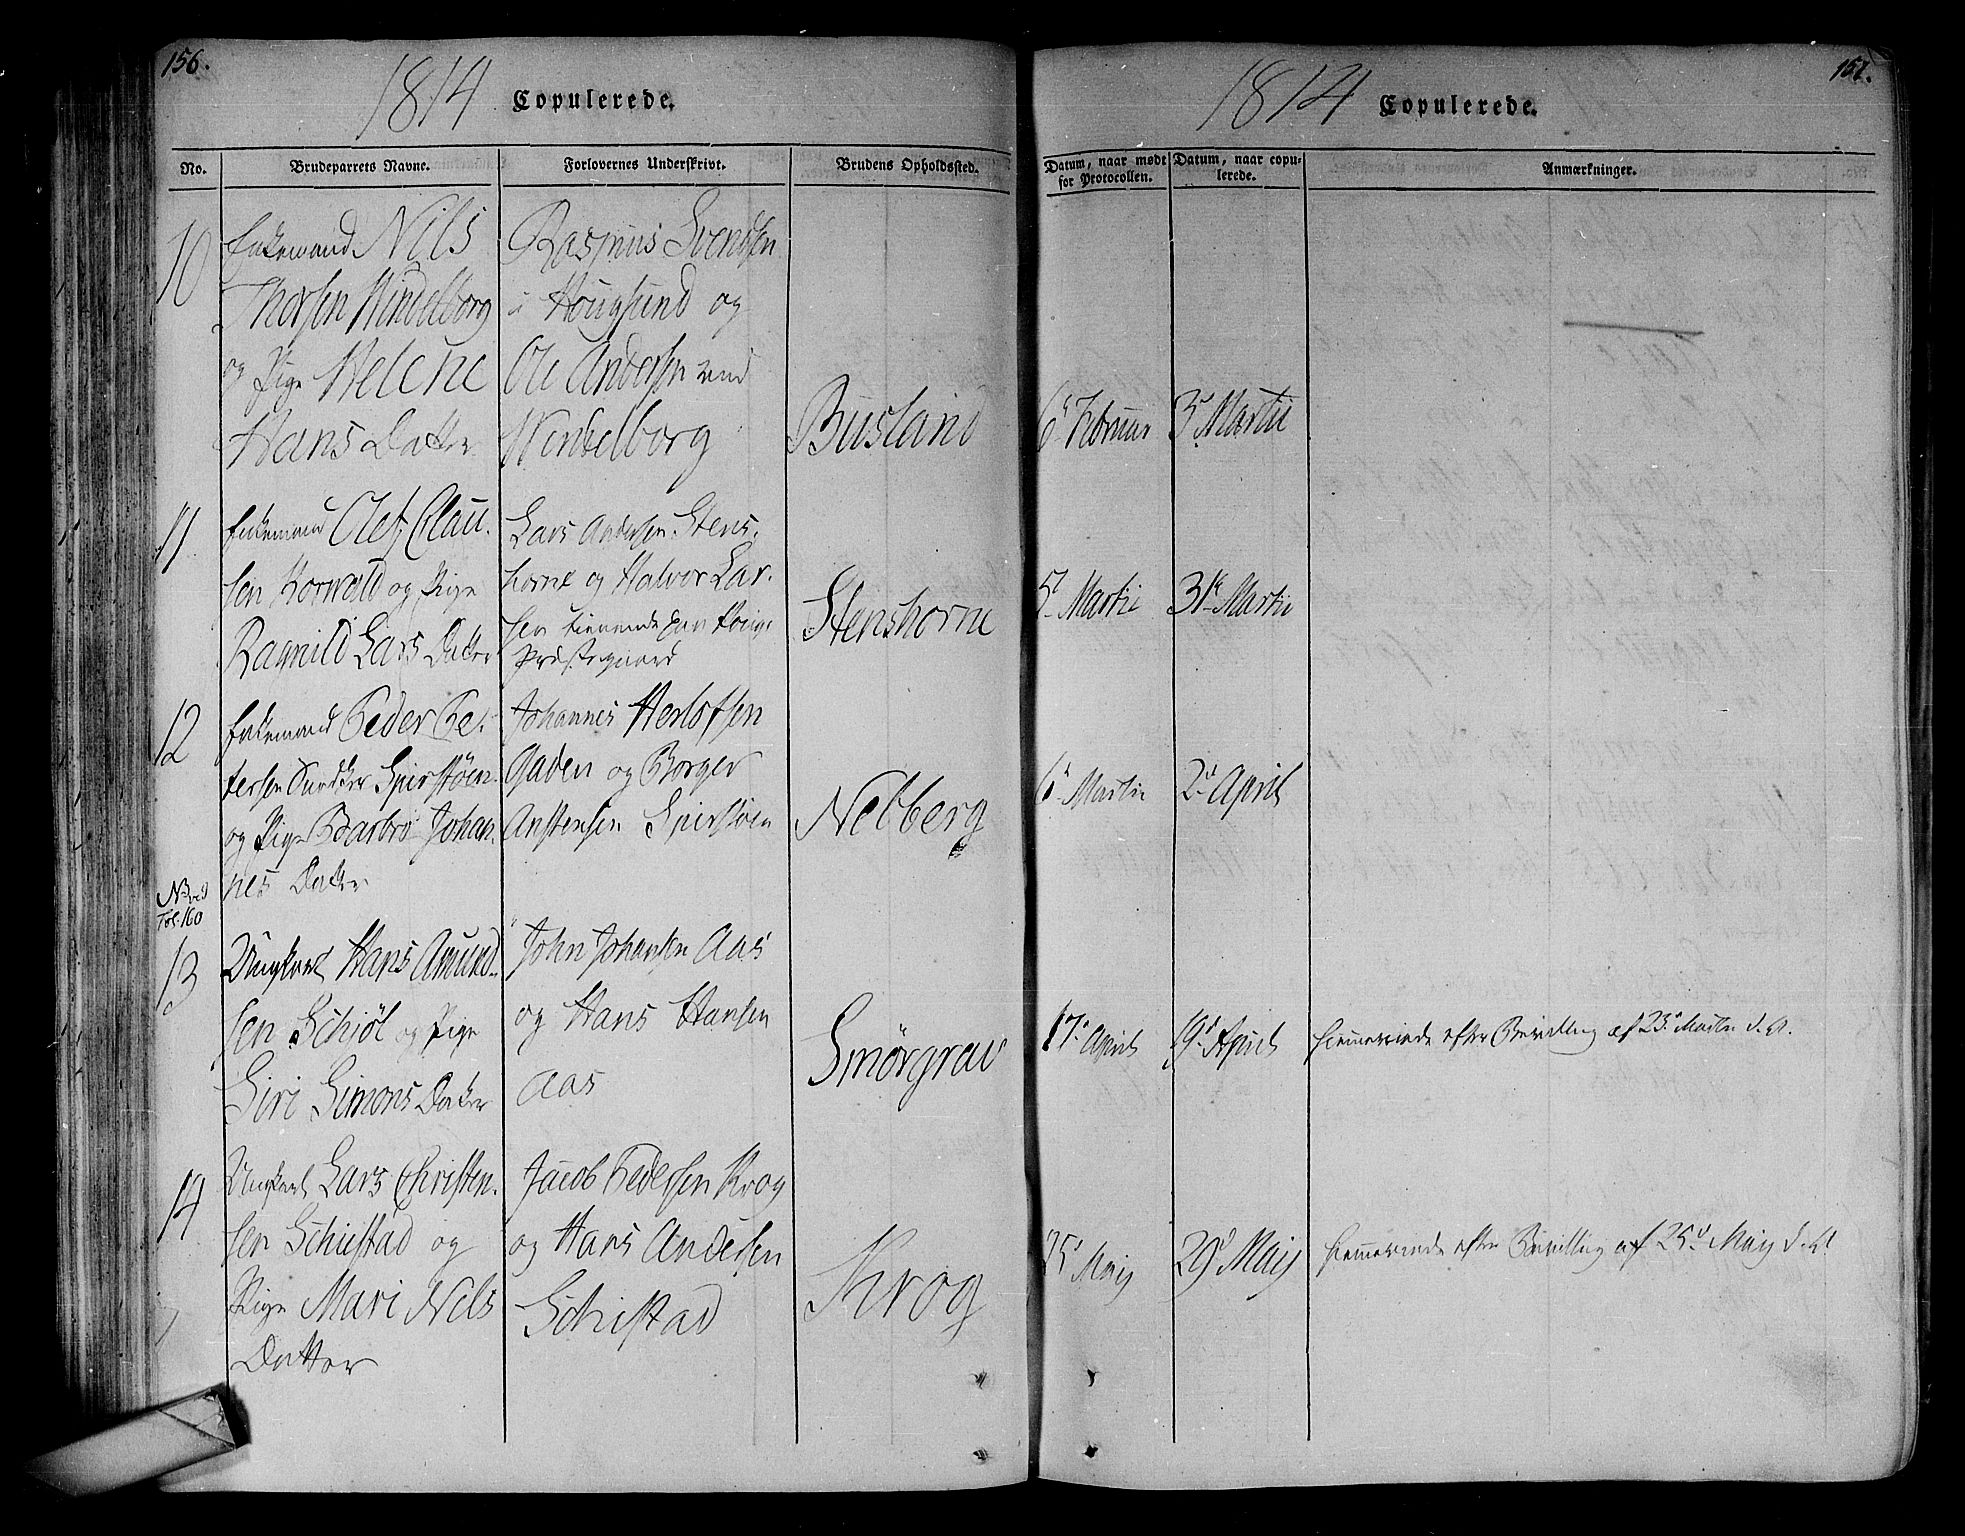 156.
1814 Copulerede.
No.
Brudeparrets Navne.
Forlovernes Underskrivt.
Brudens Opholdssted.
10
Enkemand Nils
Thorsen Windelborg
og Pige Helene
Hans Datter
Rasmus Svendsen
i Hougsund og
Ole Andersen ved
Windelborg
Busland
11
Enkemand Olef Clau-
sen Horwald og Pige
Ragnild Lars Datter
Lars Andersen Stens-
horne og Halvor Lar-
sen tienende paa
Præstegaard
Stenshorne
12
Enkemand Peder Pe-
tersen Spirstøen
og Pige Barbro Johan-
nes Datter
Johannes Herlofsen
Gaden og Borger
Anstensen Spirstøen
Nebberg
NB ved
Fol. 160
13
Ungkarl Hans Amund-
sen Schiøl og Pige
Siri Simons Datter
John Johansen Aas
og Hans Hansen
Aas
Smørgrav
14
Ungkarl Lars Christen-
sen Schistad og
Pige Mari Nels
Datter
Jacob Pedersen Krog
og Hans Andersen
Schistad
Krog
157.
1814 Copulerede.
Datum, naar mødt
for Protocollen.
Datum, naar copu-
lerede.
Anmærkninger.
6 Februar
3 Martii
5 Martii
31 Martii
6 Martii
2 April
17 April
19 April
hiemmeviede efter Bevilling af 23 Martii d. A.
25 Maij
29 Maij
hiemmeviede efter Bevilling af 25 Maij d. A.